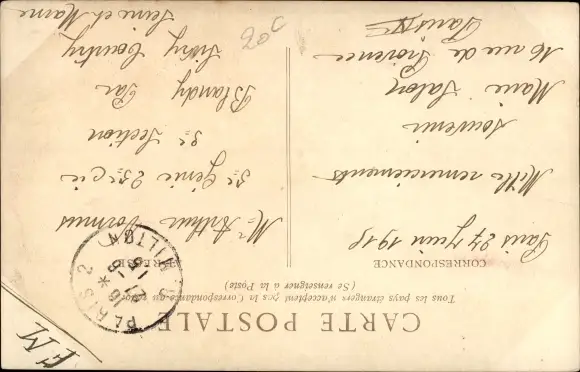 CARTE POSTALE
Tous les pays étrangers n'acceptent pas la Correspondance au
(Se renseigner à la Poste)
CORRESPONDANCE
ADRESSE
Paris 27 Juin 1915
Mille remerciements
souvenir
Marie Salon
16 rue de Provence
Paris IXe
Mr Arthur Wormus
5e Génie 25e Cie
5e Section
Blandy Par
Sivry Courtry
Seine et Marne
FM
PARIS 2
27 - 6
15
MILTON
20c